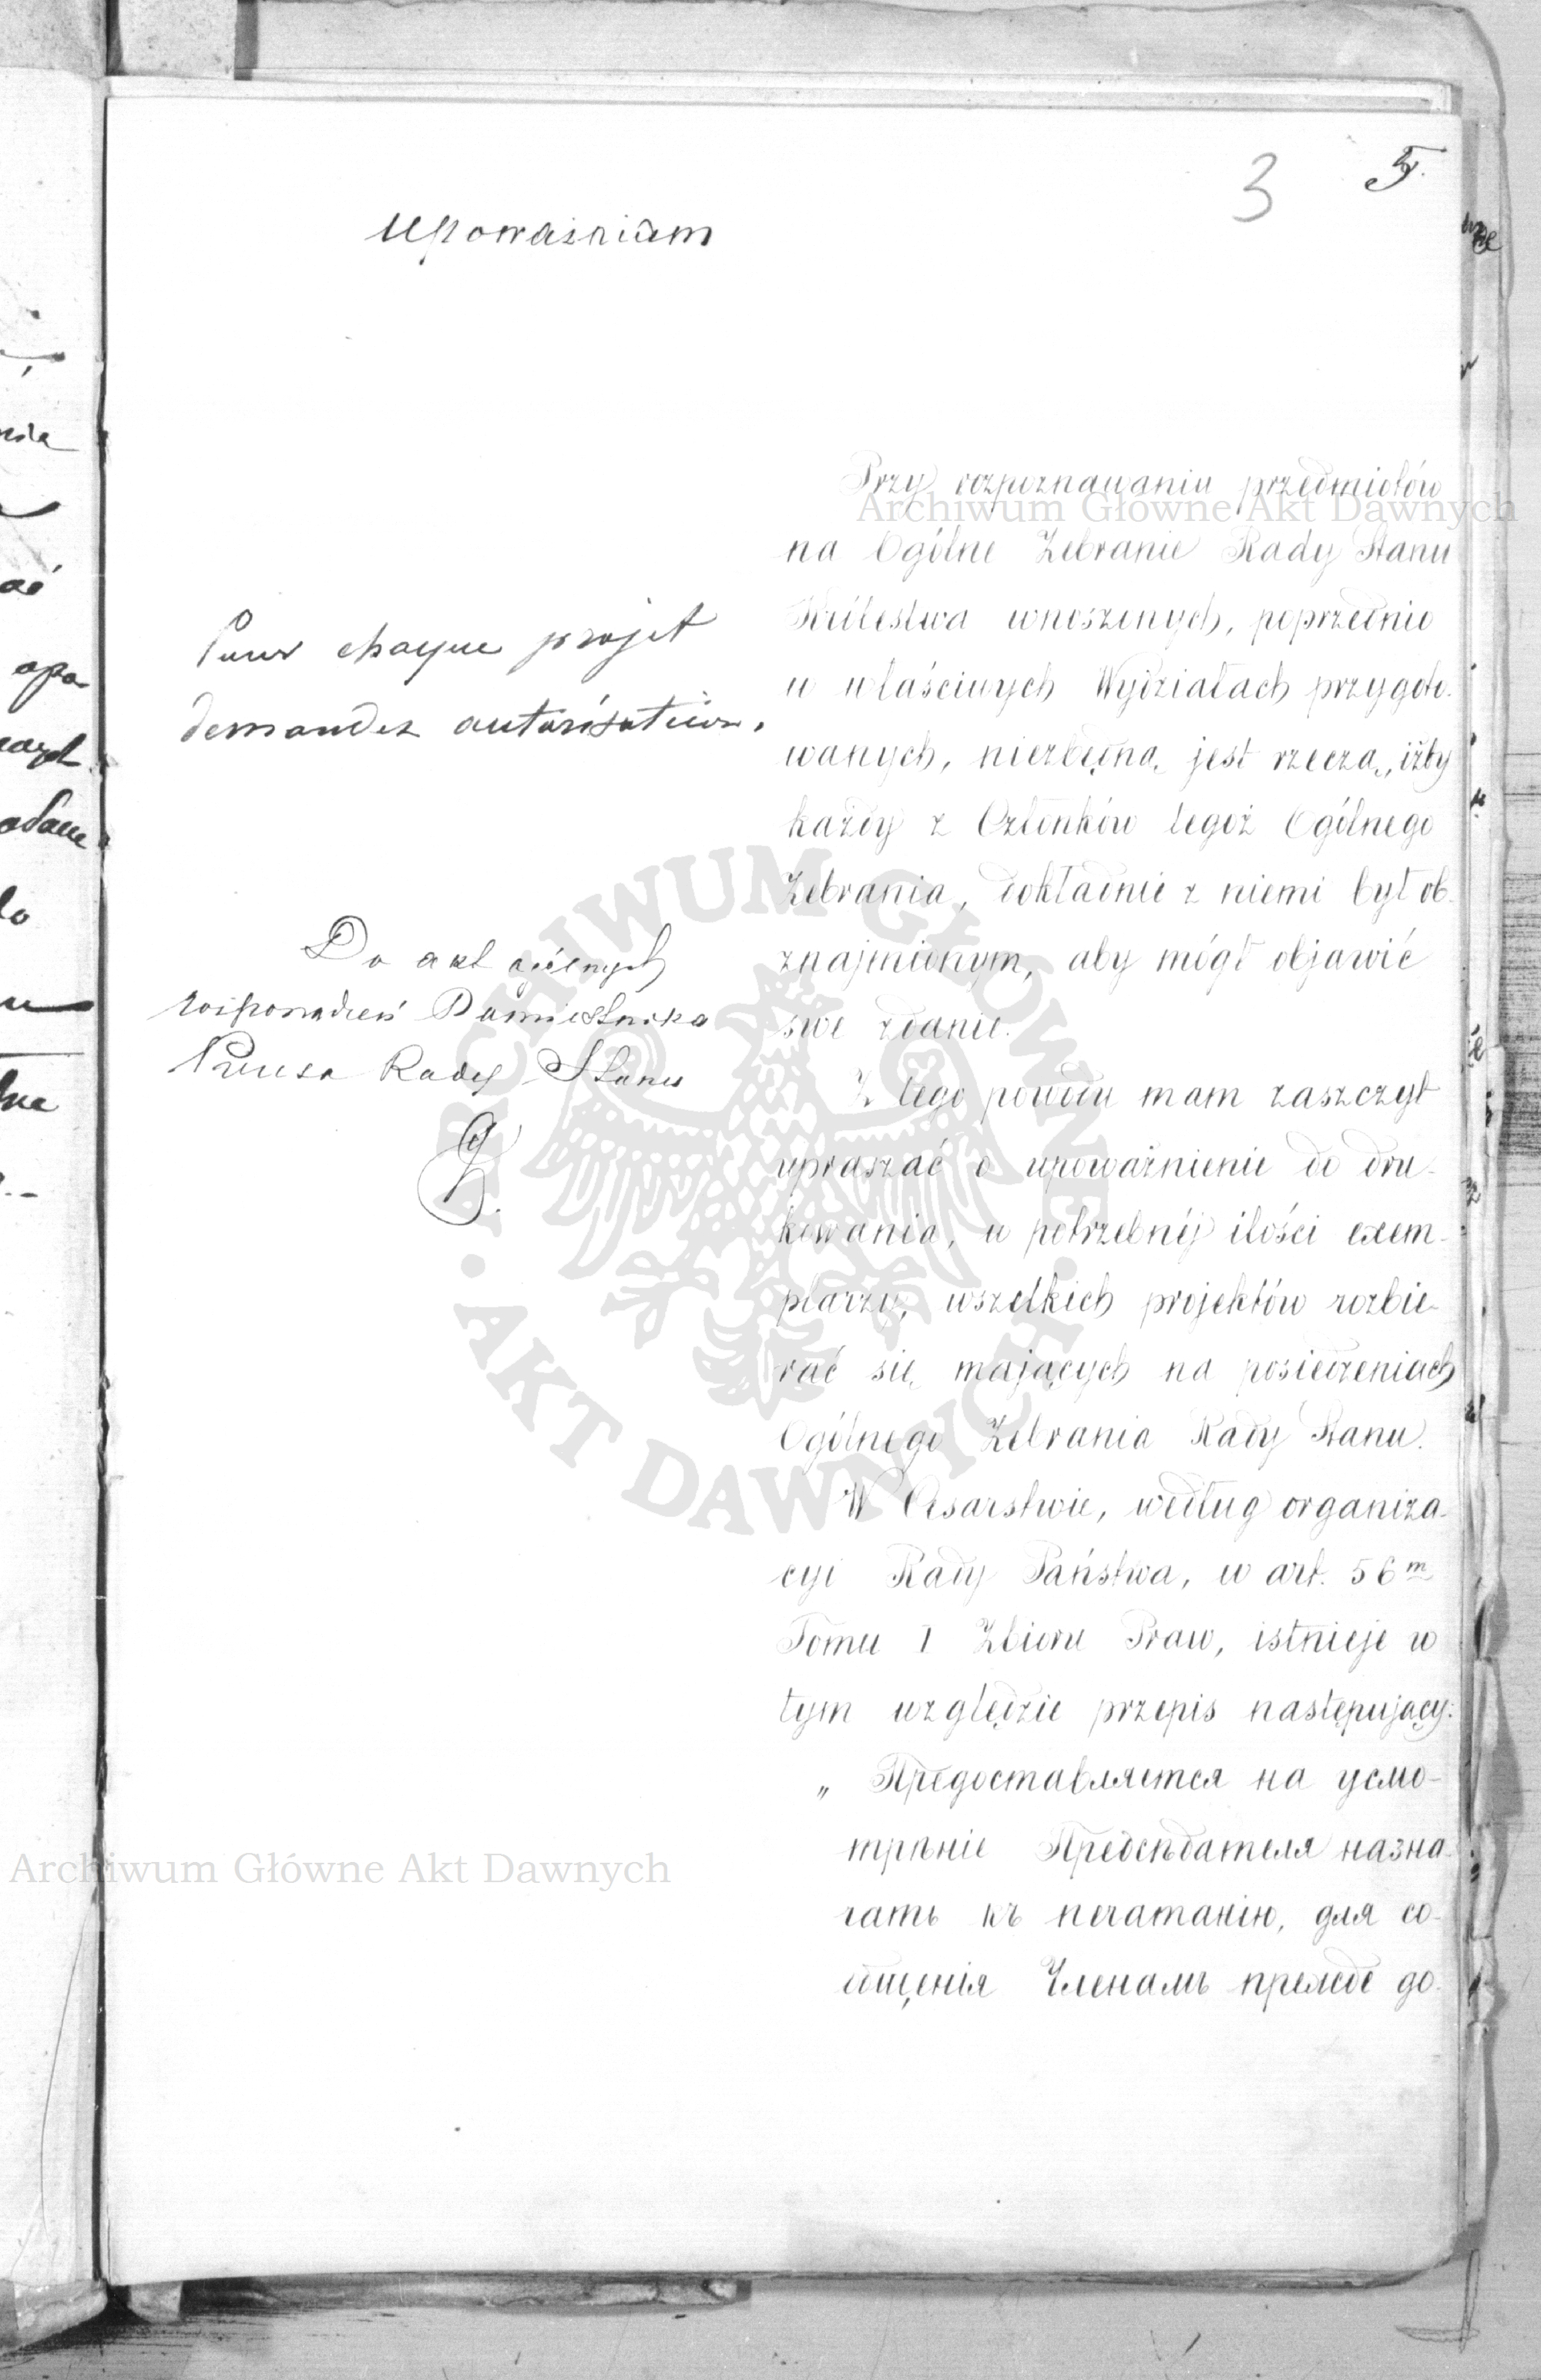 3 5.
Upoważniam
Przy rozpoznawaniu przedmiotów
na Ogólne Zebranie Rady Stanu
Królestwa wnoszonych, poprzednio
w właściwych Wydziałach przygoto-
wanych, niezbędną jest rzeczą, iżby
każdy z Członków tegoż Ogólnego
Zebrania, dokładnie z niemi był ob-
znajmionym, aby mógł objawić
swe zdanie.
Z tego powodu mam zaszczyt
upraszać o upoważnienie do dru-
kowania, w potrzebnéj ilości exem-
plarzy, wszelkich projektów rozbie-
rać się mających na posiedzeniach
Ogólnego Zebrania Rady Stanu.
W Cesarstwie, według organiza-
cyi Rady Państwa, w art. 56m
Tomu I Zbioru Praw, istnieje w
tym względzie przepis następujący:
„Предоставляется на усмо-
трѣніе Предсѣдателя назна-
чать къ печатанію, для со-
общенія Членамъ прежде до-
Pour chaque projet
demander autorisation.
Do akt ogólnych
rosporządzeń Namiestnika
Prezesa Rady Stanu
Archiwum Główne Akt Dawnych
Archiwum Główne Akt Dawnych
ARCHIWUM GŁÓWNE AKT DAWNYCH